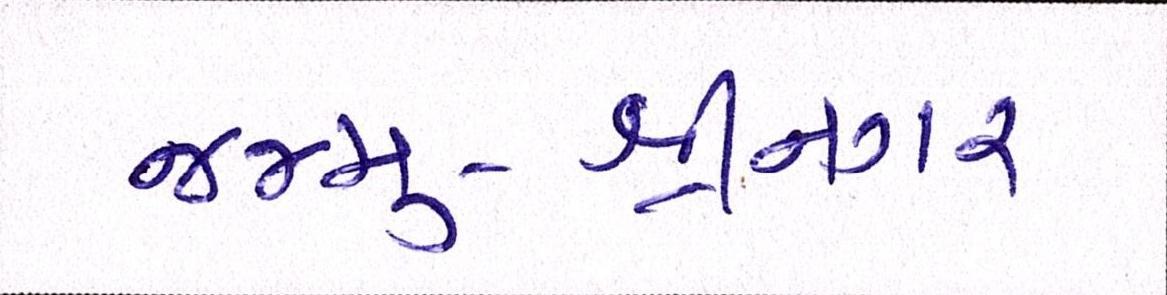 જમ્મુ-શ્રીનગર